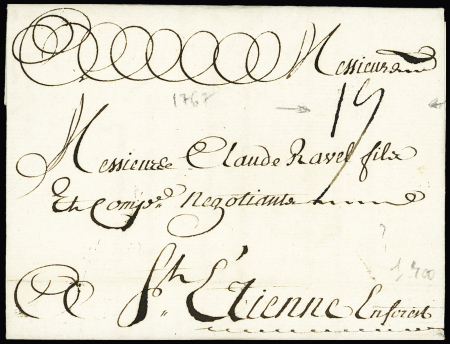 Messieurs
1767
19
Messieurs Claude Ravel fils
Et Comp.e Negotiants
A St. Etienne En forest